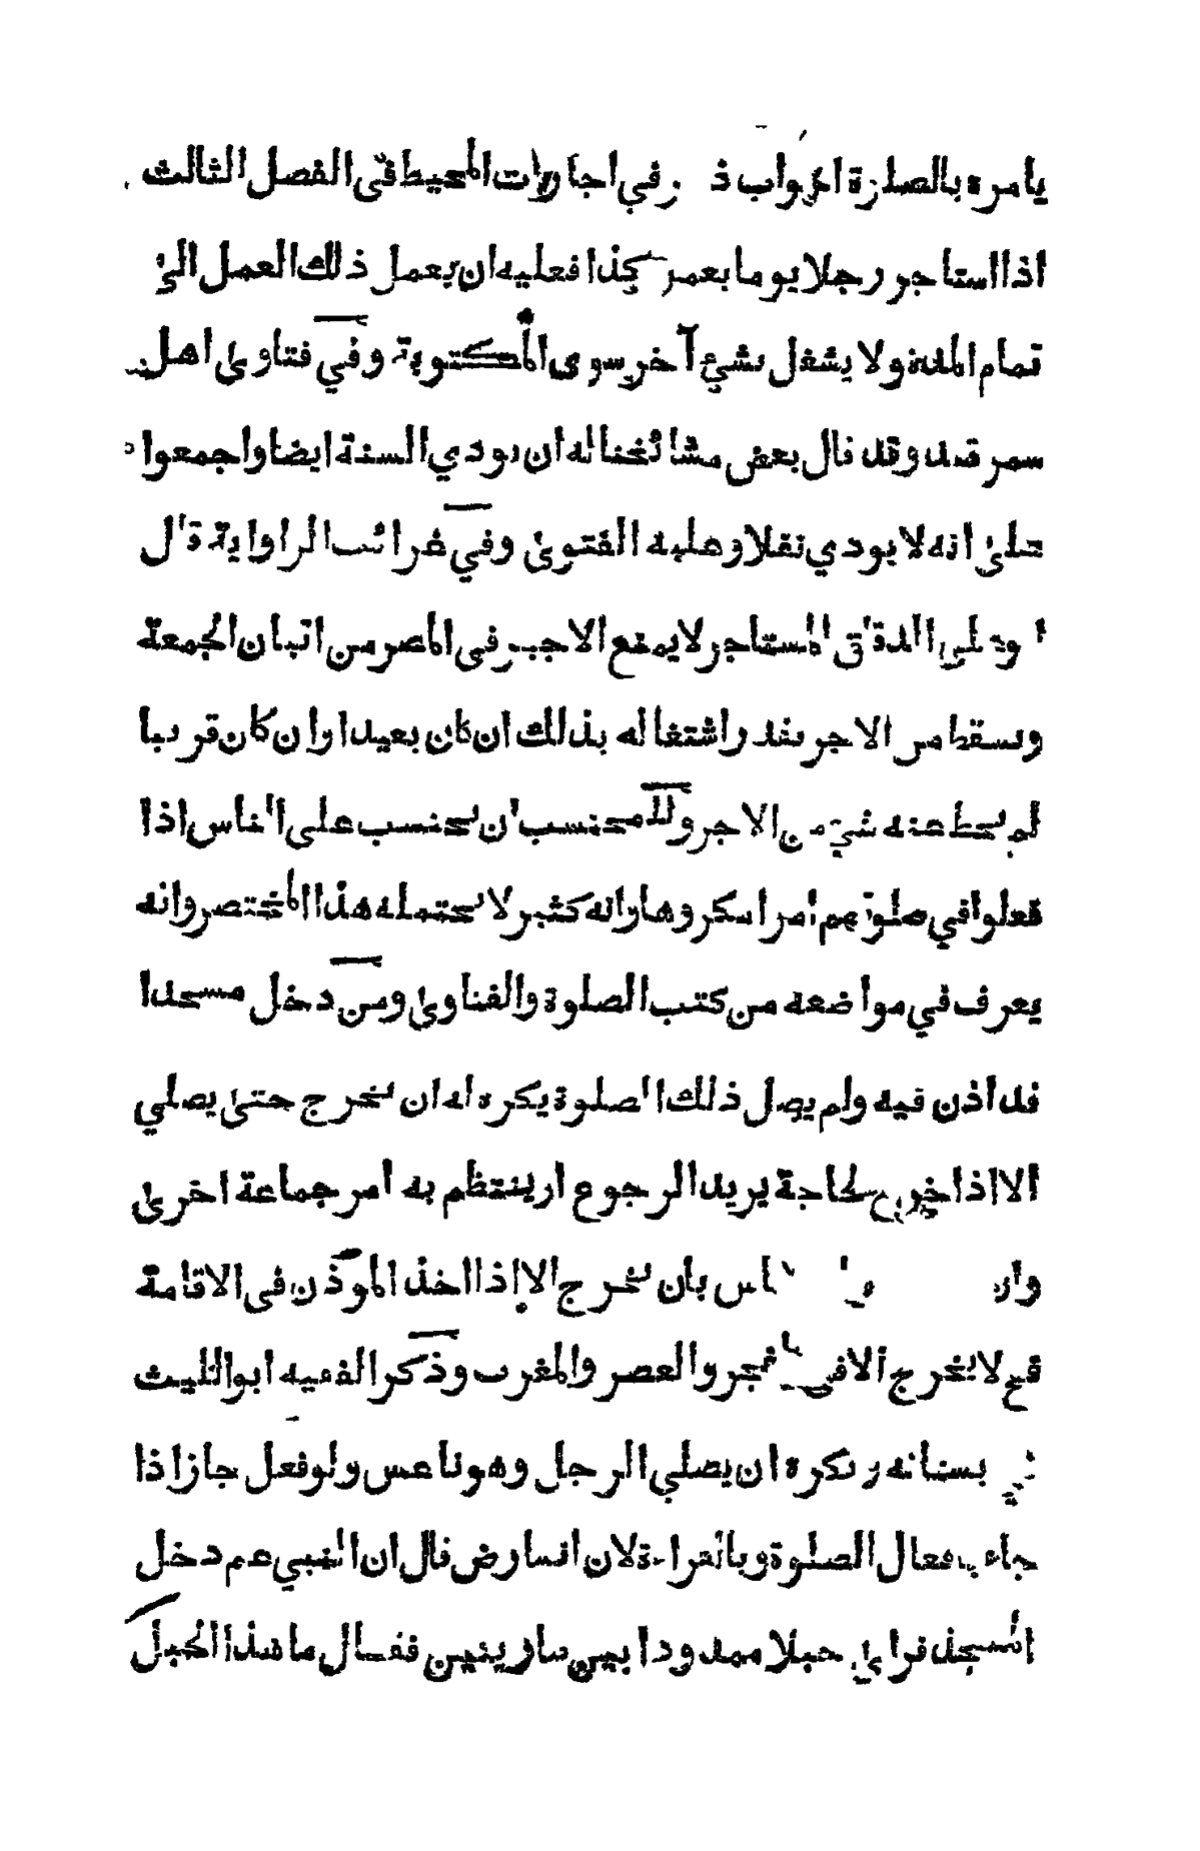 يامره بالصلوة اذ وفي اجارات المحيط في الفصل الثالث
اذا استاجر رجلا يوما بعمل كذا فعليه ان يعمل ذلك العمل الى
تمام المدة ولا يشغل بشئ آخر سوى المكتوبة وفي فتاوى اهل
سمرقند وقد قال بعض مشائخنا له ان يودي السنة ايضا واجمعوا
على انه لا يودي نفلا وعليه الفتوى وفي غرائب الراواية قال
ابو علي الدقاق المستاجر لا يمنع الاجير في المصر من اتيان الجمعة
ويسقط من الاجر بقدر اشتغاله بذلك ان كان بعيدا وان كان قريبا
لم يحط عنه شئ من الاجر وللمحتسب ان يحتسب على الناس اذا
فعلوا في صلوتهم امرا مكروها وانه كثير لا يحتمله هذا المختصر وانه
يعرف في مواضعه من كتب الصلوة والفتاوى ومن دخل مسجدا
قد اذن فيه ولم يصل ذلك الصلوة يكره له ان يخرج حتى يصلي
الا اذا خرج لحاجة يريد الرجوع او ينتظم به امر جماعة اخرى
وان باس بان يخرج الا اذا اخذ الموذن في الاقامة
فح لا يخرج الا في الفجر والعصر والمغرب وذكر الفقيه ابو الليث
في بستانه ويكره ان يصلي الرجل وهو ناعس ولو فعل جاز اذا
جاء بافعال الصلوة وبالقراءة لان انسا رض قال ان النبي عم دخل
المسجد فراى حبلا ممدودا بين ساريتين فقال ما هذا الحبل